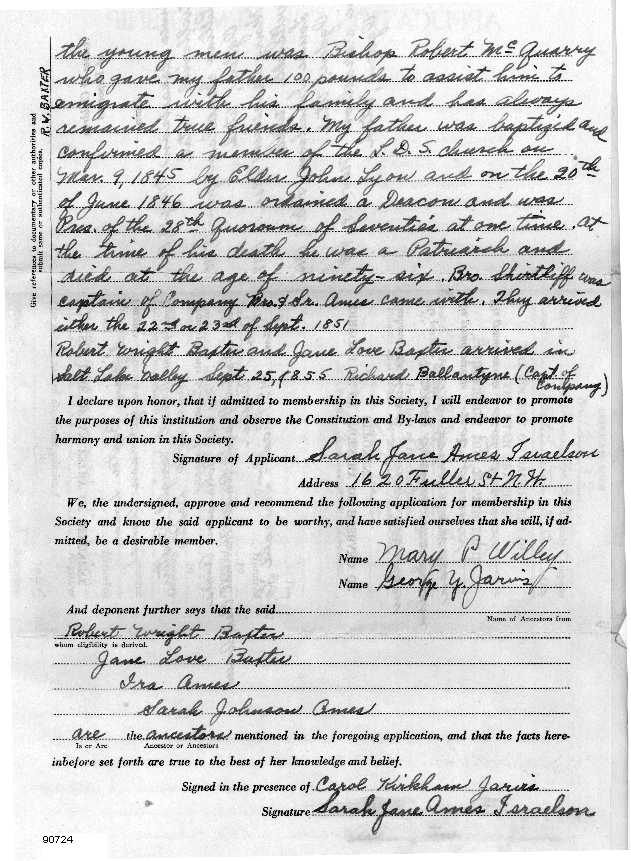 the young men was Bishop Robert McQuarry
who gave my father 100 pounds to assist him to
emigrate with his family and has always
remained true friends. My father was baptizid and
confirmed a member of the L.D.S. church on
Mar. 9, 1845 by Elder John Lyon and on the 20th
of June 1846 was ordained a Deacon and was
Pres. of the 28th Quoroum of Seventies at one time. At
the time of his death he was a Patriarch and
died at the age of ninety-six. Bro. Shirtliff was
captain of Company Bro. & Sr. Ames came with. They arrived
either the 22nd or 23rd of Sept. 1851
Robert Wright Baxter and Jane Love Baxter arrived in
Salt Lake Valley Sept 25, 1855 Richard Ballantyne (Capt. of
Company)
Give references to documentary or other authorities and
submit same or authenticated copies.
R.W. BAXTER
I declare upon honor, that if admitted to membership in this Society, I will endeavor to promote
the purposes of this institution and observe the Constitution and By-laws and endeavor to promote
harmony and union in this Society.
Signature of Applicant Sarah Jane Ames Israelson
Address 1620 Fuller St N.W.
We, the undersigned, approve and recommend the following application for membership in this
Society and know the said applicant to be worthy, and have satisfied ourselves that she will, if ad-
mitted, be a desirable member.
Name Mary P Willey
Name George Y. Jarvis
And deponent further says that the said
Name of Ancestors from
Robert Wright Baxter
whom eligibility is derived.
Jane Love Baxter
Ira Ames
Sarah Johnson Ames
are the ancestors mentioned in the foregoing application, and that the facts here-
Is or Are Ancestor or Ancestors
inbefore set forth are true to the best of her knowledge and belief.
Signed in the presence of Carol Kirkham Jarvis
Signature Sarah Jane Ames Israelson
90724